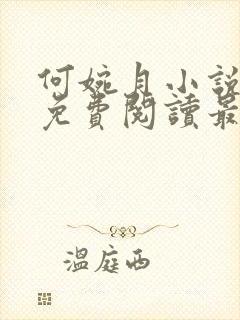 何婉月小說
免費閱讀最
溫庭西